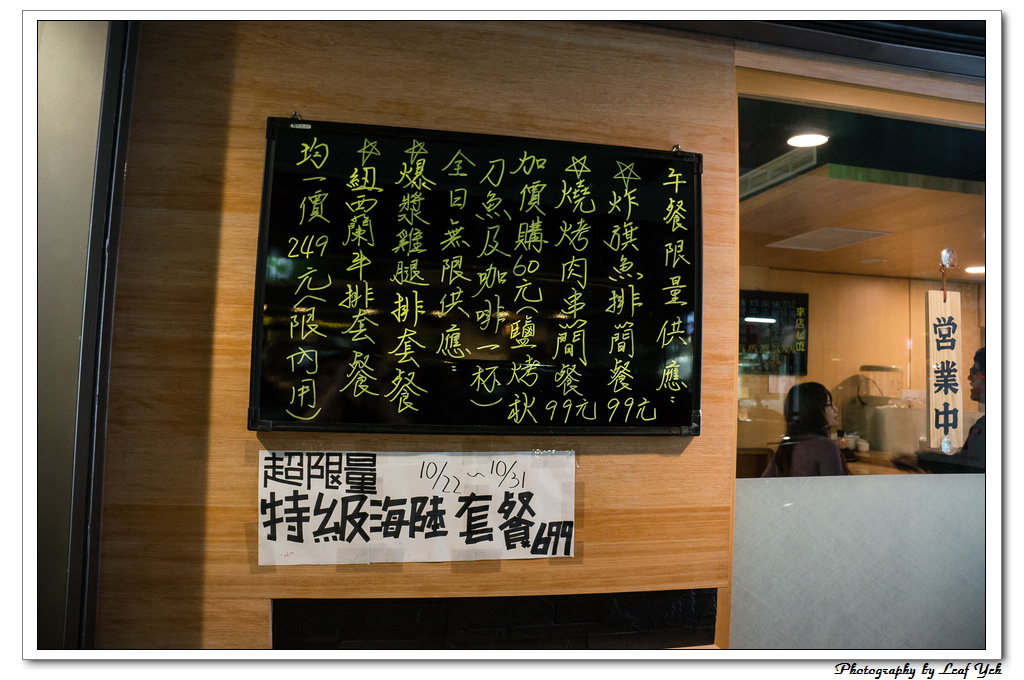 午餐限量供應:
☆炸旗魚排簡餐99元
☆燒烤肉串簡餐99元
加價購60元(鹽烤秋
刀魚及咖啡一杯)
全日無限供應:
☆爆漿雞腿排套餐
☆紐西蘭牛排套餐
均一價249元(限內用)
超限量 10/22～10/31
特級海陸套餐699
営業中
Photography by Leaf Yeh